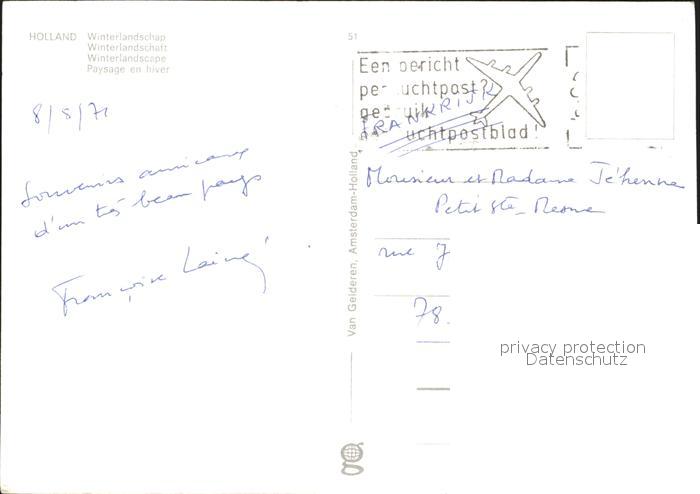 HOLLAND Winterlandschap
Winterlandschaft
Winterlandscape
Paysage en hiver
51
8/8/71
Souvenirs amicaux
d'un très beau pays
Françoise Lainé
Een bericht
per luchtpost?
gebruik
luchtpostblad!
FRANKRIJK
Monsieur et Madame Jéhenne
Petit Ste-
rue J
78.
Van Gelderen, Amsterdam-Holland
privacy protection
Datenschutz
g